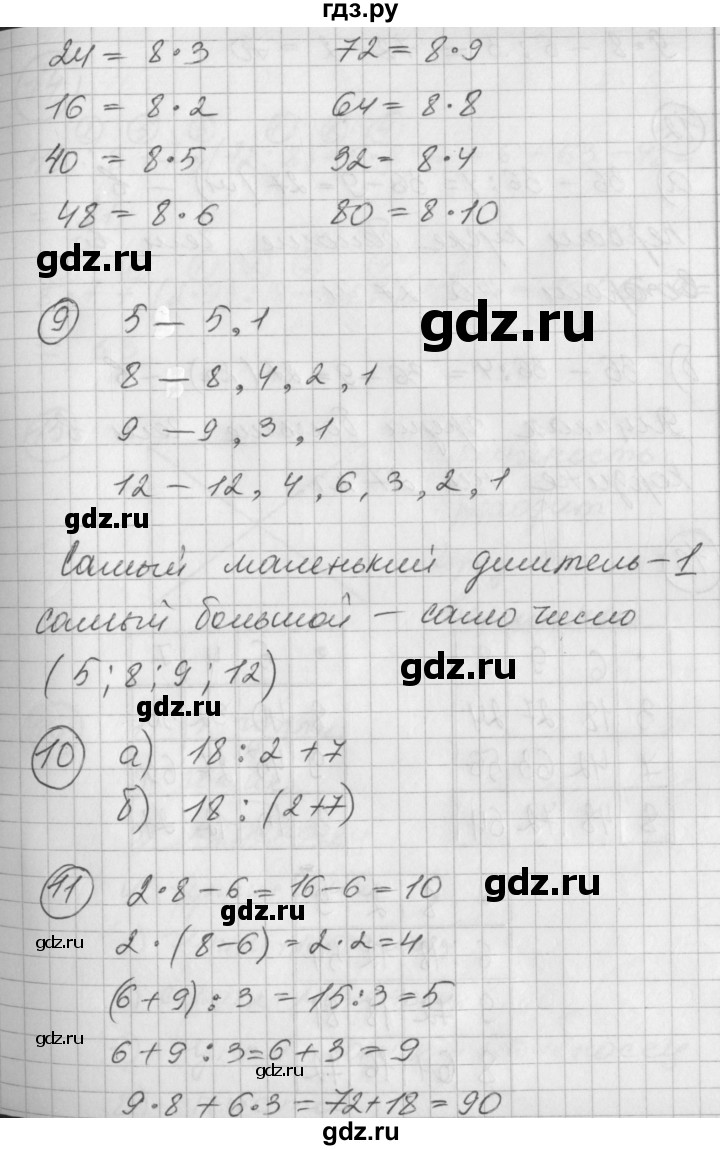 гдз.ру
24 = 8·3 72 = 8·9
16 = 8·2 64 = 8·8
40 = 8·5 32 = 8·4
48 = 8·6 80 = 8·10
gdz.ru
9 5 — 5, 1
gdz.ru
8 — 8, 4, 2, 1
9 — 9, 3, 1
12 — 12, 4, 6, 3, 2, 1
gdz.ru
Самый маленький дилитель — 1
самый большой — само число
(5; 8; 9; 12)
gdz.ru
gdz.ru
10 а) 18 : 2 + 7
б) 18 : (2+7)
11 2·8 − 6 = 16 − 6 = 10
gdz.ru
gdz.ru
gdz.ru
2·(8−6) = 2·2 = 4
(6+9) : 3 = 15:3 = 5
gdz.ru
6+9 : 3 = 6+3 = 9
gdz.ru
9·8 + 6·3 = 72+18 = 90
gdz.ru